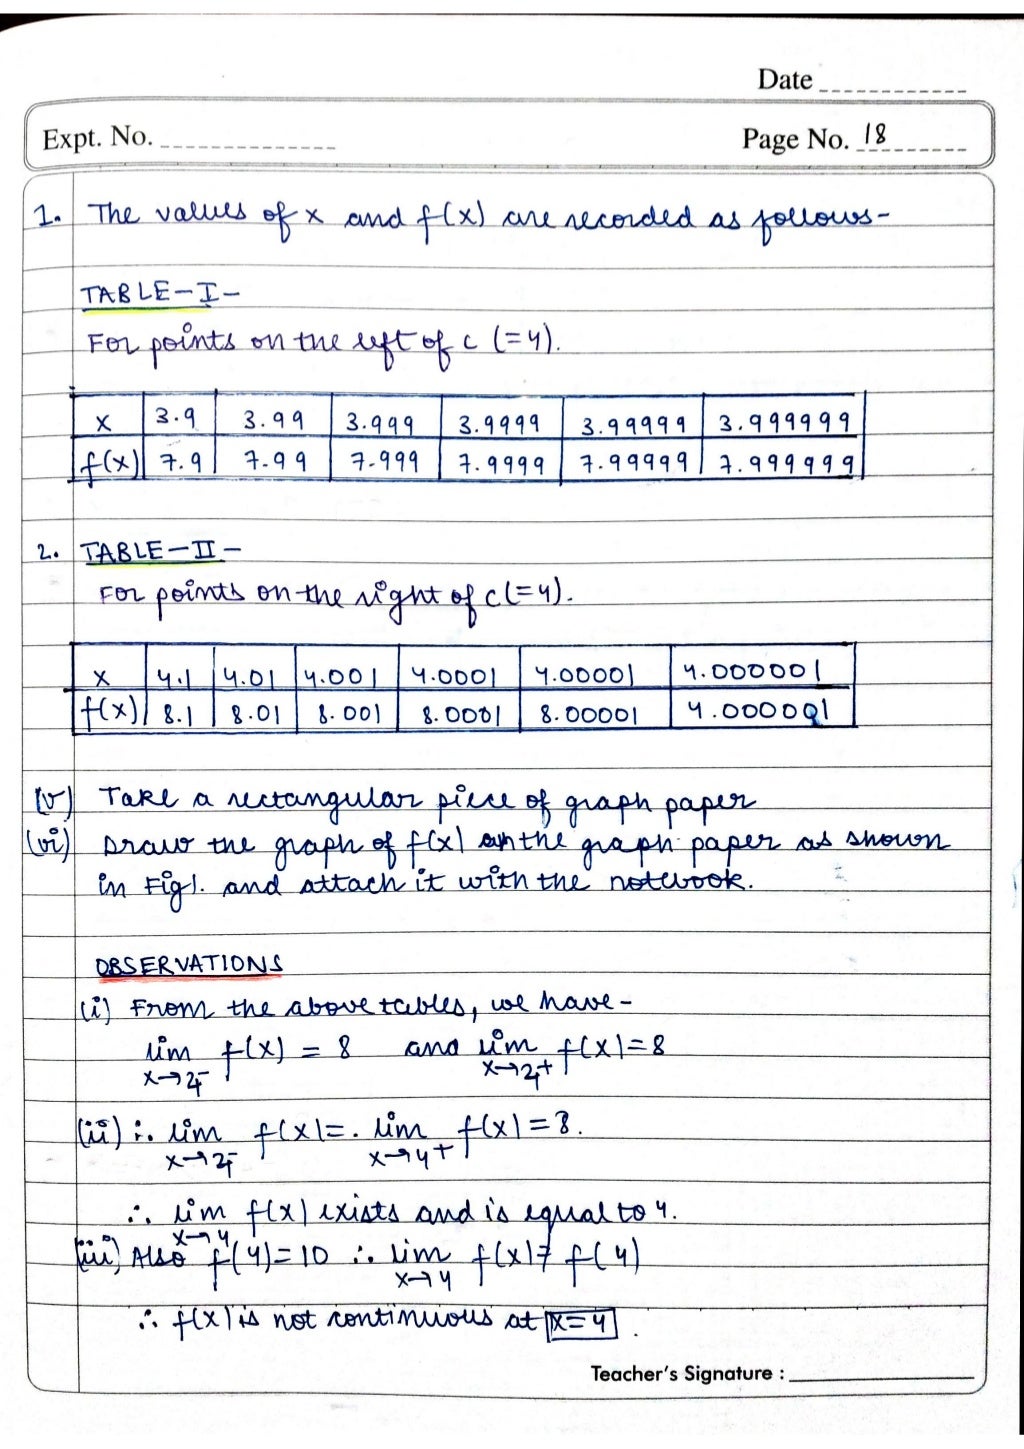 Date
Expt. No.
Page No. 18
1. The values of x and f(x) are recorded as follows-
TABLE-I-
For points on the left of c (=4).
x 3.9 3.99 3.999 3.9999 3.99999 3.999999
f(x) 7.9 7.99 7.999 7.9999 7.99999 7.999999
2. TABLE-II-
For points on the right of c(=4).
x 4.1 4.01 4.001 4.0001 4.00001 4.000001
f(x) 8.1 8.01 8.001 8.0001 8.00001 4.000001
(v) Take a rectangular piece of graph paper
(vi) Draw the graph of f(x) on the graph paper as shown
in Fig1. and attach it with the notebook.
OBSERVATIONS
(i) From the above tables, we have-
lim f(x) = 8 and lim f(x)=8
x→4⁻ x→4⁺
(ii) ∴ lim f(x)=. lim f(x)=8.
x→4⁻ x→4⁺
∴ lim f(x) exists and is equal to 4.
x→4
(iii) Also f(4)=10 ∴ lim f(x)≠ f(4)
x→4
∴ f(x) is not continuous at x=4.
Teacher's Signature :